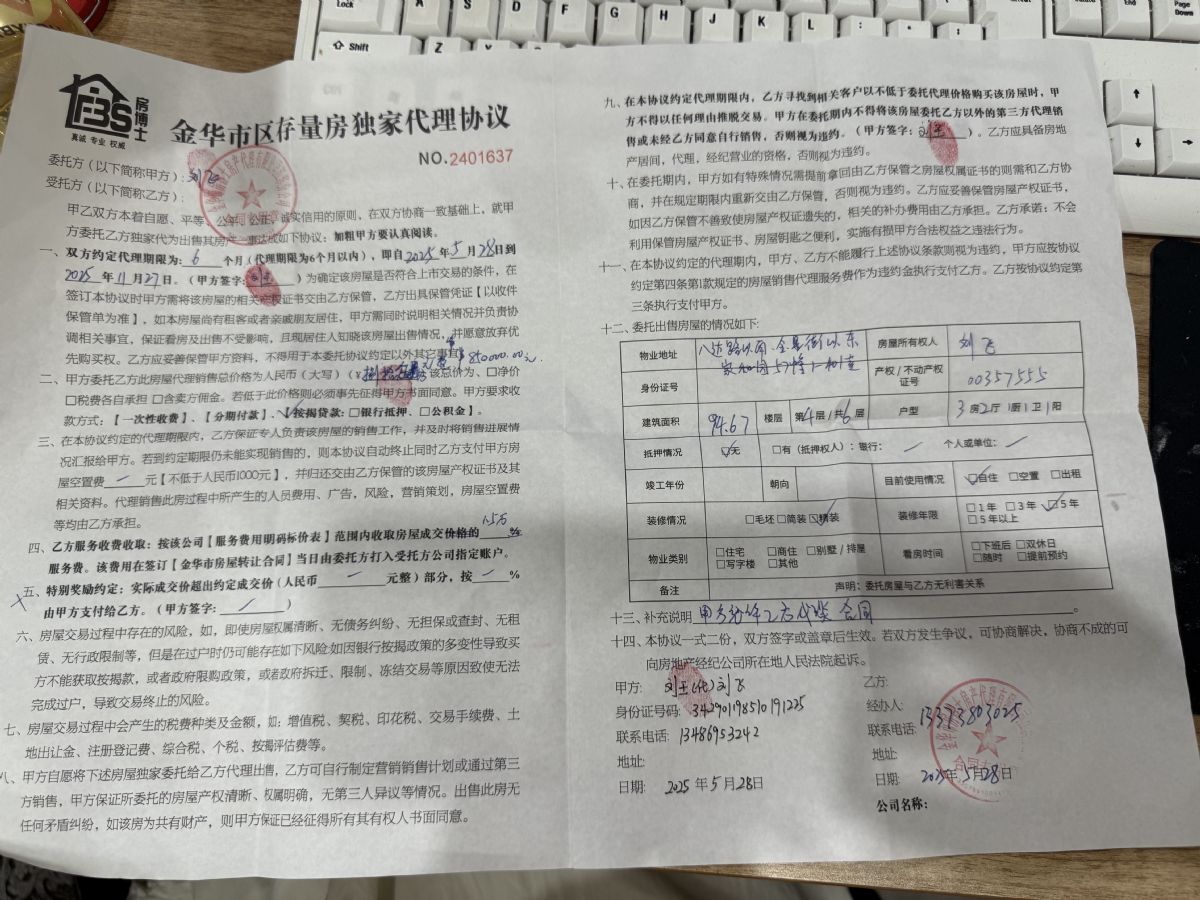 FBS
房博士
真诚 专业 权威
金华市区存量房独家代理协议
NO.2401637
委托方（以下简称甲方）：刘飞
受托方（以下简称乙方）：
甲乙双方本着自愿、平等、公平、公正、诚实信用的原则，在双方协商一致基础上，就甲
方委托乙方独家代为出售其房产一事达成如下协议：加粗甲方要认真阅读。
一、双方约定代理期限为：6个月（代理期限为6个月以内），即自2025年5月28日到
2025年11月27日。（甲方签字：）为确定该房屋是否符合上市交易的条件，在
签订本协议时甲方需将该房屋的相关产权证书交由乙方保管，乙方出具保管凭证【以收件
保管单为准】，如本房屋尚有租客或者亲戚朋友居住，甲方需同时说明相关情况并负责协
调相关事宜，保证看房及出售不受影响，且现居住人知晓该房屋出售情况，并愿意放弃优
先购买权。乙方应妥善保管甲方资料，不得用于本委托协议约定以外其它事宜。
二、甲方委托乙方此房屋代理销售总价格为人民币（大写）（¥850000.00元 该总价为、□净价
□税费各自承担 □含卖方佣金。若低于此价格则必须事先征得甲方书面同意。甲方要求收
款方式：【一次性收费】、【分期付款】、按揭贷款：□银行抵押、□公积金】。
三、在本协议约定的代理期限内，乙方保证专人负责该房屋的销售工作，并及时将销售进展情
况汇报给甲方。若到约定期限仍未能实现销售的，则本协议自动终止同时乙方支付甲方房
屋空置费 — 元【不低于人民币1000元】，并归还交由乙方保管的该房屋产权证书及其
相关资料。代理销售此房过程中所产生的人员费用、广告，风险，营销策划，房屋空置费
等均由乙方承担。
四、乙方服务收费收取：按该公司【服务费用明码标价表】范围内收取房屋成交价格的1.5万%
服务费。该费用在签订【金华市房屋转让合同】当日由委托方打入受托方公司指定账户。
五、特别奖励约定：实际成交价超出约定成交价（人民币 — 元整）部分，按 — %
由甲方支付给乙方。（甲方签字：）
六、房屋交易过程中存在的风险，如，即使房屋权属清晰、无债务纠纷、无担保或查封、无租
赁、无行政限制等，但是在过户时仍可能存在如下风险:如因银行按揭政策的多变性导致买
方不能获取按揭款，或者政府限购政策，或者政府拆迁、限制、冻结交易等原因致使无法
完成过户，导致交易终止的风险。
七、房屋交易过程中会产生的税费种类及金额，如；增值税、契税、印花税、交易手续费、土
地出让金、注册登记费、综合税、个税、按揭评估费等。
八、甲方自愿将下述房屋独家委托给乙方代理出售，乙方可自行制定营销销售计划或通过第三
方销售，甲方保证所委托的房屋产权清晰、权属明确，无第三人异议等情况。出售此房无
任何矛盾纠纷，如该房为共有财产，则甲方保证已经征得所有其有权人书面同意。
九、在本协议约定代理期限内，乙方寻找到相关客户以不低于委托代理价格购买该房屋时，甲
方不得以任何理由推脱交易。甲方在委托期内不得将该房屋委托乙方以外的第三方代理销
售或未经乙方同意自行销售，否则视为违约。（甲方签字：）。乙方应具备房地
产居间，代理，经纪营业的资格，否则视为违约。
十、在委托期内，甲方如有特殊情况需提前拿回由乙方保管之房屋权属证书的则需和乙方协
商，并在规定期限内重新交由乙方保管，否则视为违约。乙方应妥善保管房屋产权证书，
如因乙方保管不善致使房屋产权证遗失的，相关的补办费用由乙方承担。乙方承诺：不会
利用保管房屋产权证书、房屋钥匙之便利，实施有损甲方合法权益之违法行为。
十一、在本协议约定的代理期内，甲方、乙方不能履行上述协议条款则视为违约，甲方应按协议
约定第四条第1款规定的房屋销售代理服务费作为违约金执行支付乙方。乙方按协议约定第
三条执行支付甲方。
十二、委托出售房屋的情况如下：
物业地址 八达路以南、金昼街以东 房屋所有权人 刘飞
家和园57幢1-
身份证号 产权/不动产权证号 00357555
建筑面积 94.67 楼层 第4层/共6层 户型 3房2厅1厨1卫1阳
抵押情况 ☑无 □有（抵押权人）：银行： — 个人或单位： —
竣工年份 朝向 目前使用情况 ☑自住 □空置 □出租
装修情况 □毛坯 □简装 ☑精装 装修年限 □1年 □3年 ☑5年 □5年以上
物业类别 □住宅 □商住 □别墅/排屋 □写字楼 □其他 看房时间 □下班后 □双休日 □随时 □提前预约
备注 声明：委托房屋与乙方无利害关系
十三、补充说明 甲方给予乙方代签合同。
十四、本协议一式二份，双方签字或盖章后生效。若双方发生争议，可协商解决，协商不成的可
向房地产经纪公司所在地人民法院起诉。
甲方：刘 (代) 刘飞
身份证号码：342901198510191225
联系电话：13486953242
地址：
日期：2025年5月28日
乙方：
经办人：
联系电话：13373803025
地址：
日期：2025年5月28日
公司名称：